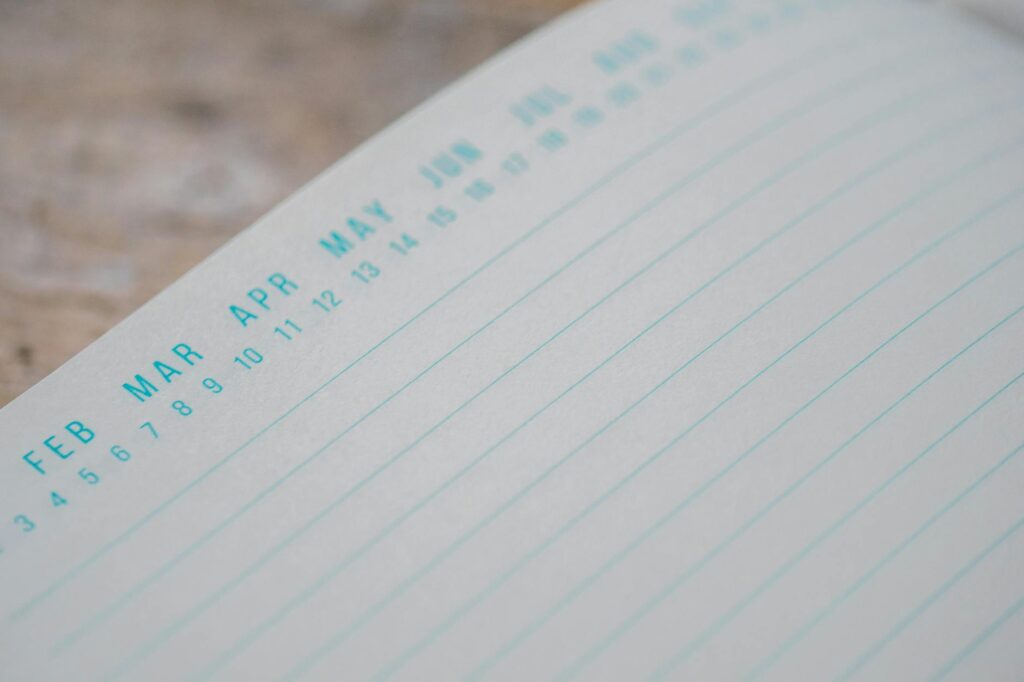 FEB MAR APR MAY JUN JUL AUG
3 4 5 6 7 8 9 10 11 12 13 14 15 16 17 18 19 20 21